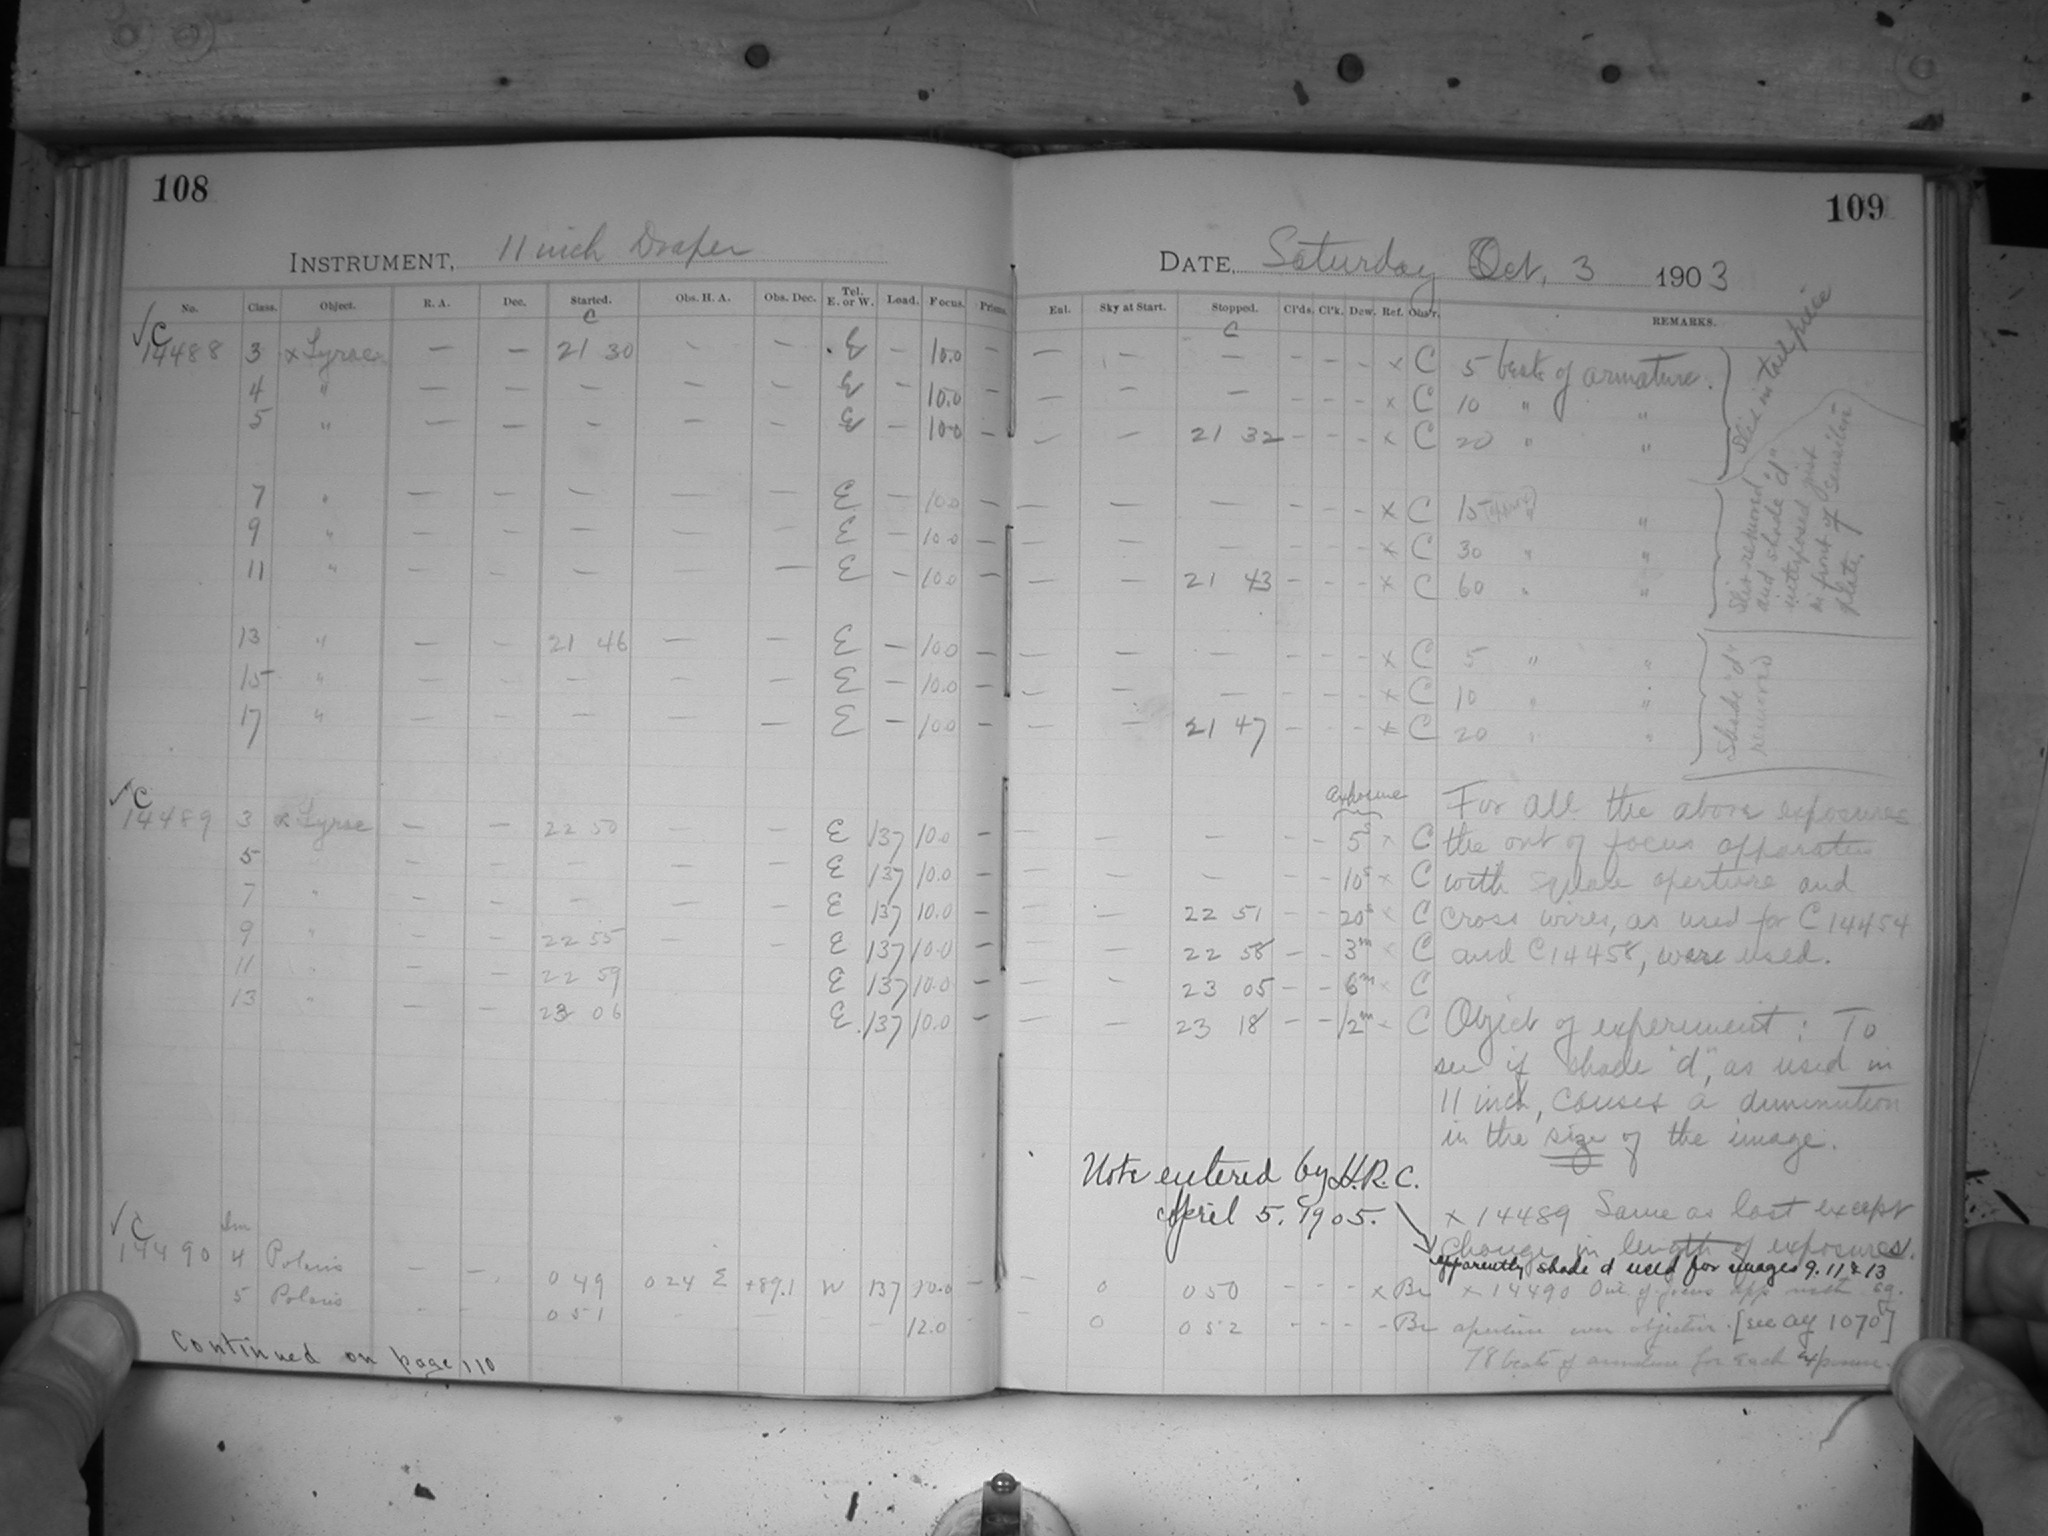 108
INSTRUMENT, 11 inch Draper
No. Class. Object. R. A. Dec. Started. Obs. H. A. Obs. Dec. Tel. E. or W. Load. Focus. Prisms.
C
√ C
14488 3 α Lyrae — — 21 30 - - E - 10.0 —
4 " — — — - - E - 10.0 —
5 " — — - - - E - 10.0 —
7 " — — — — — E — 10.0 —
9 " — — — — — E — 10.0 —
11 " — — — — — E — 10.0 —
13 " — — 21 46 — — E — 10.0 —
15 " — — — — — E — 10.0 —
17 " — — — — — E — 10.0 —
√ C
14489 3 α Lyrae — — 22 50 — — E 137 10.0 —
5 — — — — — E 137 10.0 —
7 " — — — — — E 137 10.0 —
9 " — — 22 55 — — E 137 10.0 —
11 " — — 22 59 E 137 10.0 —
13 " — — 23 06 E 137 10.0 —
√ C
14490 4 Polaris — — 0 49 0 24 E +89.1 W 137 10.0 —
5 Polaris - - 0 51 - - - - 12.0
Continued on page 110
109
DATE, Saturday Oct, 3 1903
Enl. Sky at Start. Stopped. Cl'ds. Cl'k. Dew. Ref. Obs'r. REMARKS.
C
— — — - - - × C 5 beats of armature.
— — — - - - × C 10 " "
— — 21 32 - - - × C 20 " "
Slid in tailpiece
— — — - - - × C 15 " "
— — — - - - × C 30 " "
— — 21 43 - - - × C 60 " "
removed
and shade "d"
interposed just
in front of sensitive
plate.
— — — - - - × C 5 " "
— — — - - - × C 10 " "
— — 21 47 - - - × C 20 " "
Shade "d"
removed
exposure
— — — - 5s × C
— — — - 10s × C
— — 22 51 - - 20s × C
— — 22 58 - - 3m × C
— — 23 05 - - 6m × C
— — 23 18 - - 12m × C
For all the above exposures
the out of focus apparatus
with square aperture and
cross wires, as used for C 14454
and C 14458, were used.
Object of experiment: To
see if shade "d", as used in
11 inch, causes a diminution
in the size of the image.
Note entered by H.R.C.
April 5, 1905.
× 14489 Same as last except
Change in length of exposures.
apparently shade d used for images 9. 11 & 13
— 0 0 50 - - - × Br × 14490 Out of focus app with sq.
— 0 0 52 - - - - Br aperture over objective. [see ay 1070]
78 beats of armature for each exposure.